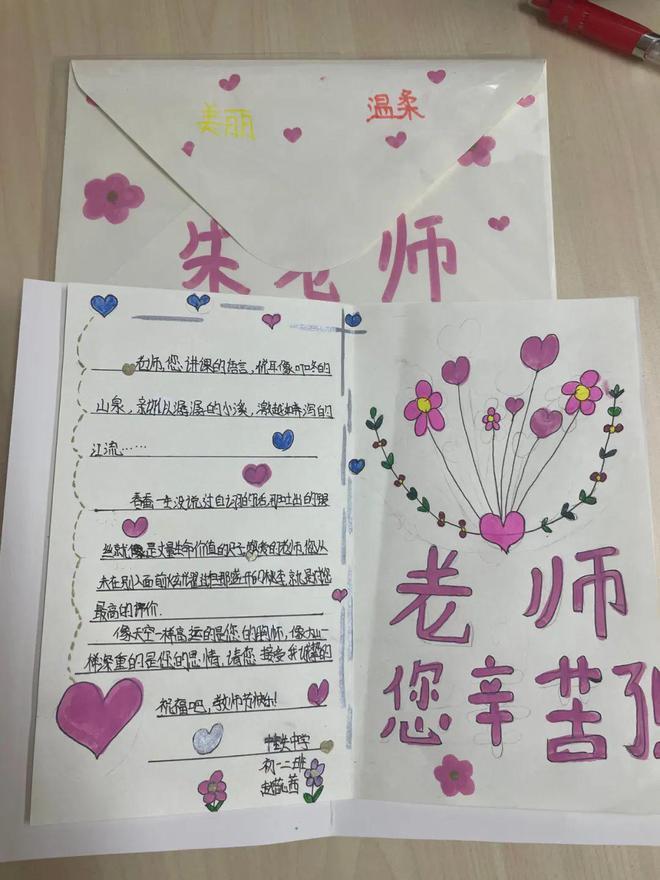 美丽
温柔
朱老师
老师,您讲课的语言,悦耳像叮咚的
山泉,亲切似潺潺的小溪,激越如奔泻的
江流……
春蚕一生没说过自诩的话,那吐出的银
丝就像是丈量生命价值的尺子。敬爱的老师,您从
未在别人面前炫耀过,但那盛开的桃李,就是对您
最高的评价.
像天空一样高远的是您的胸怀,像大山一
样深重的是您的恩情,请您接受我诚挚的
祝福吧,教师节快乐!
中学
初一二班
赵
茜
老师
您辛苦